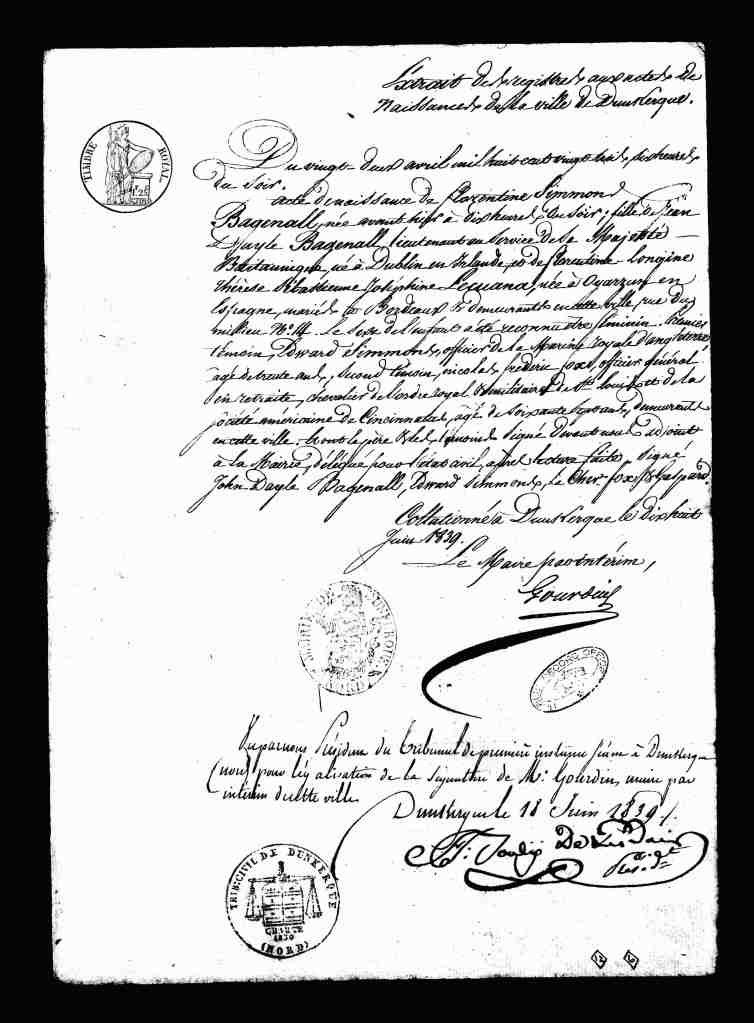 Extrait des registres aux actes de
Naissances de la ville de Dunkerque.
TIMBRE ROYAL
Du vingt-deux avril mil huit cent vingt trois, six heures
du soir.
acte de naissance de Florentine Simmonds
Bagenall, née avant hier à dix heures du soir; fille de Jean
Dayle Bagenall, lieutenant au service de Sa Majesté
Britannique, né à Dublin en Irlande, et de Florentine Longine
Thérèse Sébastienne Joséphine Lecuana, née à Oyarzun en
Espagne, mariés à Bordeaux & demeurants en cette ville rue du
milieu N.º 14. Le Sexe de l'enfant a été reconnu être féminin. Premier
témoin, Edward Simmonds, officier de la Marine royale d'angleterre
âgé de trente ans, Second témoin, nicolas fréderic fox, officier général
en retraite, chevalier de l'ordre royal & militaire de St. louis et de la
société américaine de Cincinnatus, âgé de soixante ans, demeurant
en cette ville. Et ont le père & les témoins signé devant nous adjoint
à la Mairie, délégué pour l'état civil, après lecture faite, Signé
John Dayle Bagenall, Edward Simmonds, le Cher. fox & Gaspard.
Collationné à Dunkerque le dix huit
Juin 1839.
Le Maire par intérim,
Gourdin
DUNKERQUE
NORD
RECORD OFFICE
Vu par nous Président du tribunal de première instance séant à Dunkerque
(nord) pour légalisation de la signature de Mr. Gourdin, maire par
intérim de cette ville
Dunkerque le 18 Juin 1839.
Présidt.
TRIB. CIVIL DE DUNKERQUE
CHARTE
1830
(NORD)